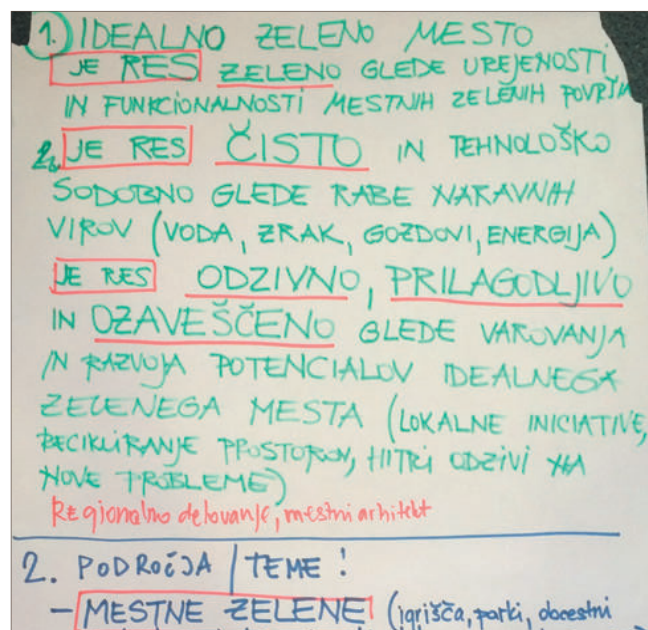 1. IDEALNO ZELENO MESTO
JE RES ZELENO GLEDE UREJENOSTI
IN FUNKCIONALNOSTI MESTNIH ZELENIH POVRŠIN
2. JE RES ČISTO IN TEHNOLOŠKO
SODOBNO GLEDE RABE NARAVNIH
VIROV (VODA, ZRAK, GOZDOVI, ENERGIJA)
JE RES ODZIVNO, PRILAGODLJIVO
IN OZAVEŠČENO GLEDE VAROVANJA
IN RAZVOJA POTENCIALOV IDEALNEGA
ZELENEGA MESTA (LOKALNE INICIATIVE,
RECIKLIRANJE PROSTOROV, HITRI ODZIVI NA
NOVE PROBLEME)
Regionalno delovanje, mestni arhitekt
2. PODROČJA / TEME!
- MESTNE ZELENE (igrišča, parki, obcestni